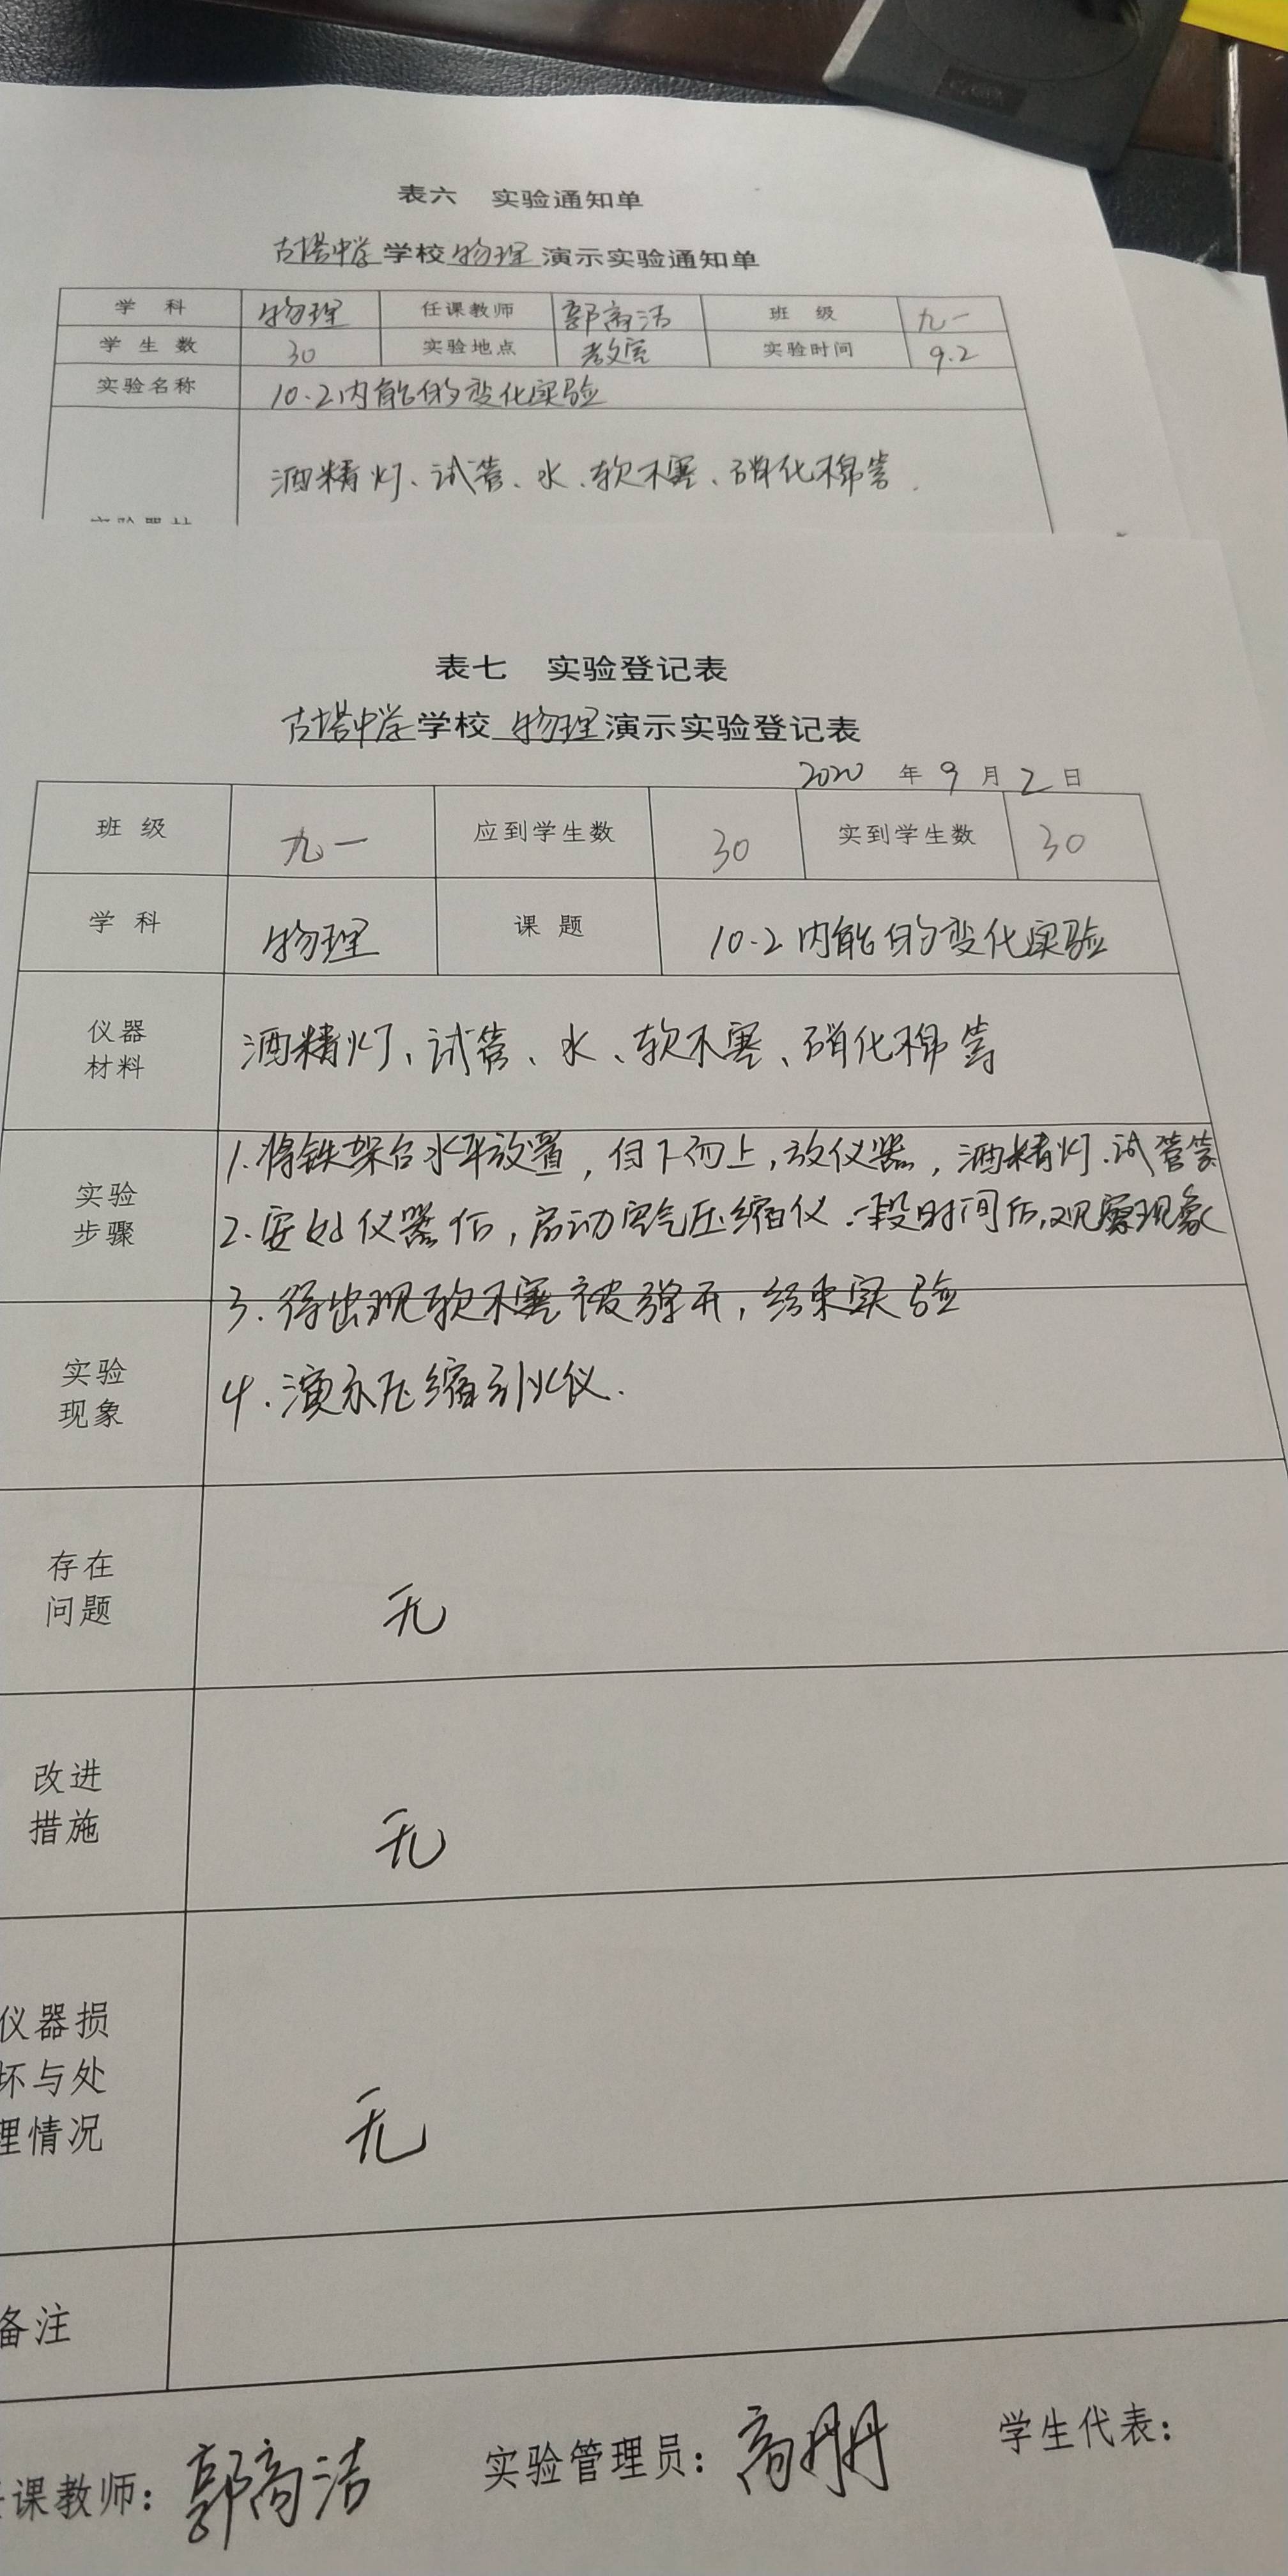 表六 实验通知单
古塔中学学校物理演示实验通知单
学 科 物理 任课教师 郭商洁 班 级 九一
学 生 数 30 实验地点 教室 实验时间 9.2
实验名称 10.2内能的变化实验
酒精灯、试管、水、软木塞、硝化棉等.
表七 实验登记表
古塔中学学校 物理演示实验登记表
2020 年 9 月 2 日
班 级 九一 应到学生数 30 实到学生数 30
学 科 物理 课 题 10.2内能的变化实验
仪器
材料
酒精灯、试管、水、软木塞、硝化棉等
实验
步骤
1.将铁架台水平放置,自下而上,放仪器,酒精灯.试管等
2.安好仪器后,启动空气压缩仪.一段时间后,观察现象
3.待出现软木塞被弹开,结束实验
实验
现象
4.演示压缩引火仪.
存在
问题
无
改进
措施
无
仪器损
坏与处
理情况
无
备注
课教师: 郭商洁 实验管理员: 高丹丹 学生代表: